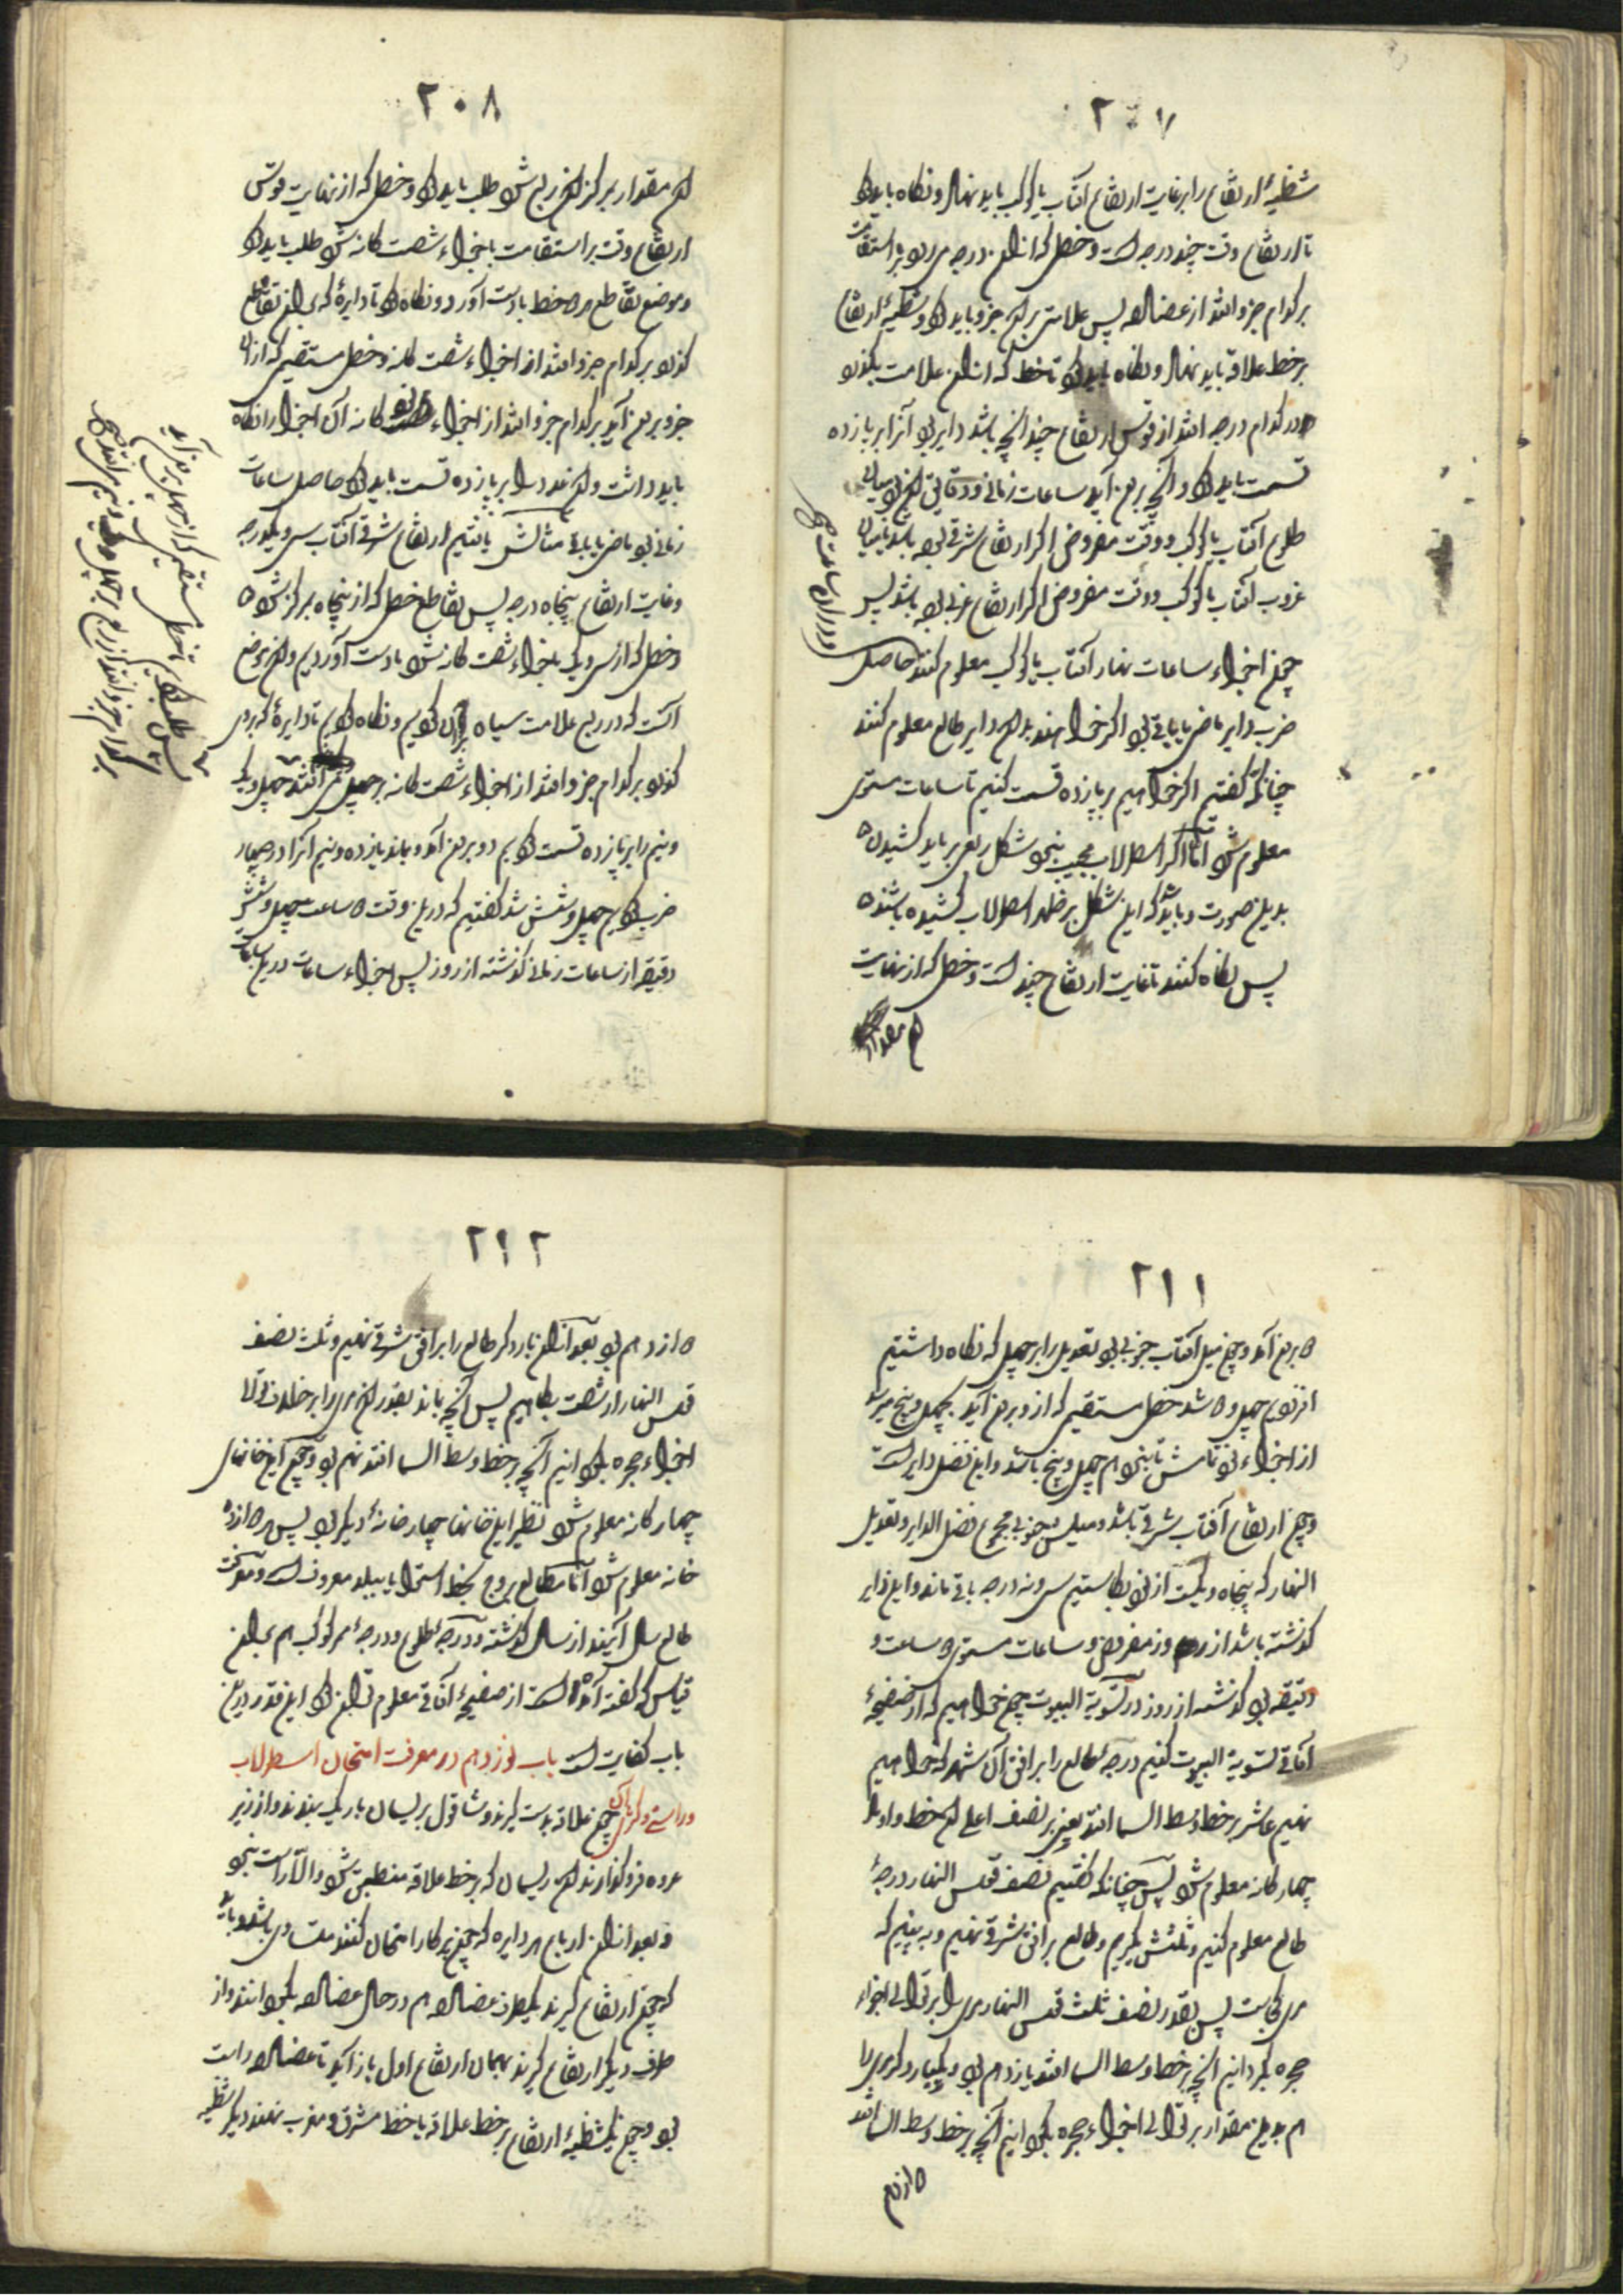 ٢٠٧
شظیهٔ ارتفاع را بر غایت ارتفاع آفتاب یا کوکب باید نهاد و نگاه باید کرد
تا ارتفاع وقت چند درجه است و خطی که از آن درجه می رود بر استقامت
بر کدام جزو افتد از عضاده پس علامتی بر آن جزو باید کرد و شظیهٔ ارتفاع
بر خط علاقه باید نهاد و نگاه باید کرد تا خط که از آن علامت بگذرد
در کدام درجه افتد از قوس ارتفاع چندانچه باشد دایر بود آنرا بر پانزده
قسمت باید کرد و آنچه برون آید ساعات زمانی و دقایق آن بود میان
طلوع آفتاب یا کوکب و وقت مفروض اگر ارتفاع شرقی بوده باشد یا میان
غروب آفتاب یا کوکب و وقت مفروض اگر ارتفاع غربی بوده باشد پس
چون اجزاء ساعات نهار آفتاب یا کوکب معلوم کنند حاصل
ضرب دایر ماضی یا باقی بود اگر خواهند بدان دایر طالع معلوم کنند
چنانکه گفتیم اگر خواهیم بر پانزده قسمت کنیم تا ساعات مستوی
معلوم شود اما اگر اسطرلاب مجیب بود شکل ربعی بر باید کشیدن
بدین صورت و باید که این شکل بر ظهر اسطرلاب کشیده باشند
پس نگاه کنند تا غایت ارتفاع چند است و خطی که از نهایت
آن مقدار
٢٠٨
آن مقدار بمرکز آن ربع شود طلب باید کرد و خطی که از نهایت قوس
ارتفاع وقت بر استقامت باجزاء شصت گانه شود طلب باید کرد
و موضع تقاطع هر دو خط بادست آورد و نگاه کرد تا دایرهٔ که بر آن تقاطع
گذرد بر کدام جزو افتد از اجزاء شصت گانه و خطی مستقیم که از آن
جزو برون آید بر کدام جزو افتد از اجزاء نود گانه آن اجزا را نگاه
باید داشت و آن عدد را بر پانزده قسمت باید کرد حاصل ساعات
زمانی بود ماضی یا باقی مثالش یافتیم ارتفاع شرقی آفتاب سی و یکدرجه
و غایت ارتفاع پنجاه درجه پس تقاطع خطی که از پنجاه بمرکز شود
و خطی که از سی و یک باجزاء شصت گانه شود بادست آوردیم و آن موضع
آنست که در ربع علامت سیاه بر آن کردیم و نگاه کردیم تا دایرهٔ که بروی
گذرد بر کدام جزو افتد از اجزاء شصت گانه بر چهل می افتد چهل و یک
و نیم را بر پانزده قسمت کردیم دو برون آمد و بماند یازده و نیم آنرا در چهار
ضرب کردیم چهل و شش شد گفتیم که درین وقت دو ساعت چهل و شش
دقیقه از ساعات زمانی گذشته از روز پس اجزاء ساعات درین ساعات
٢١١
برون آمد و چون میل آفتاب جنوبی بود تعدیل را بر چهل که نگاه داشتیم
افزودیم چهل و دو شد خطی مستقیم که ازو برون آید بچهل و پنج میرسد
از اجزاء نود تمامش تا نود هم چهل و پنج باشد و این فضل دایر است
و چون ارتفاع آفتاب شرقی باشد و میلش جنوبی مجموع فضل الدایر و تعدیل
النهار که پنجاه و یکست از نود بکاستیم سی و نه درجه باقی ماند و این دایر
گذشته باشد از روز مفروض و ساعات مستوی دو ساعت و
دقیقه بود گذشته از روز در تسویة البیوت چون خواهیم که از صفیحهٔ
آفاقی تسویة البیوت کنیم درجهٔ طالع را بر افق آن شهر که خواهیم
نهیم عاشر بر خط وسط السما افتد یعنی بر نصف اعلی آن خط و اوتاد
چهار گانه معلوم شود پس چنانکه گفتیم نصف قوس النهار درجهٔ
طالع معلوم کنیم و ثلثش بگیریم و طالع بر افق شرقی نهیم و ببینیم که
مری کجاست پس بقدر نصف ثلث قوس النهار مری را بر توالی اجزاء
حجره بگردانیم آنچه بر خط وسط السما افتد یازدهم بود و یکبار دگر مری را
هم بدین مقدار بر توالی اجزاء حجره بگردانیم آنچه بر خط وسط السما افتد
دوازدهم
٢١٢
دوازدهم بود بعد از آن بار دگر طالع را بر افق شرقی نهیم و ثلث نصف
قوس النهار از شصت بکاهیم پس آنچه بماند بقدر آن مری را بر خلاف توالی
اجزاء حجره بگردانیم آنچه بر خط وسط السما افتد نهم بود و چون این خانهای
چهار گانه معلوم شود نظیر این خانها چهار خانهٔ دیگر بود پس هر دوازده
خانه معلوم شود اما مطالع بروج بخط استوا یا ببلد معروف است و معرفت
طالع سال آینده از سال گذشته و درجهٔ طلوع و درجهٔ ممر کوکب هم بر آن
قیاس که گفته آمد است از صفیحهٔ آفاقی معلوم توان کرد این قدر درین
باب کفایت است باب نوزدهم در معرفت امتحان اسطرلاب
و راستی و کژی آن چون علاقه بدست گیرند و شاقول بریسمان باریک ببندند و از زیر
عروه فرو گذارند آن ریسمان که بر خط علاقه منطبق شود والّا راست نبود
و بعد از آن ارباع هر دایره که چون پرگار امتحان کنند متساوی باشد و باید
که چون ارتفاع گیرند بیکطرف عضاده هم در حال عضاده بگردانند و از
طرف دیگر ارتفاع گیرند بهمان ارتفاع اول باز آید تا عضاده راست
بود و چون یک شظیهٔ ارتفاع بر خط علاقه یا خط مشرق و مغرب نهند دیگر شظیه